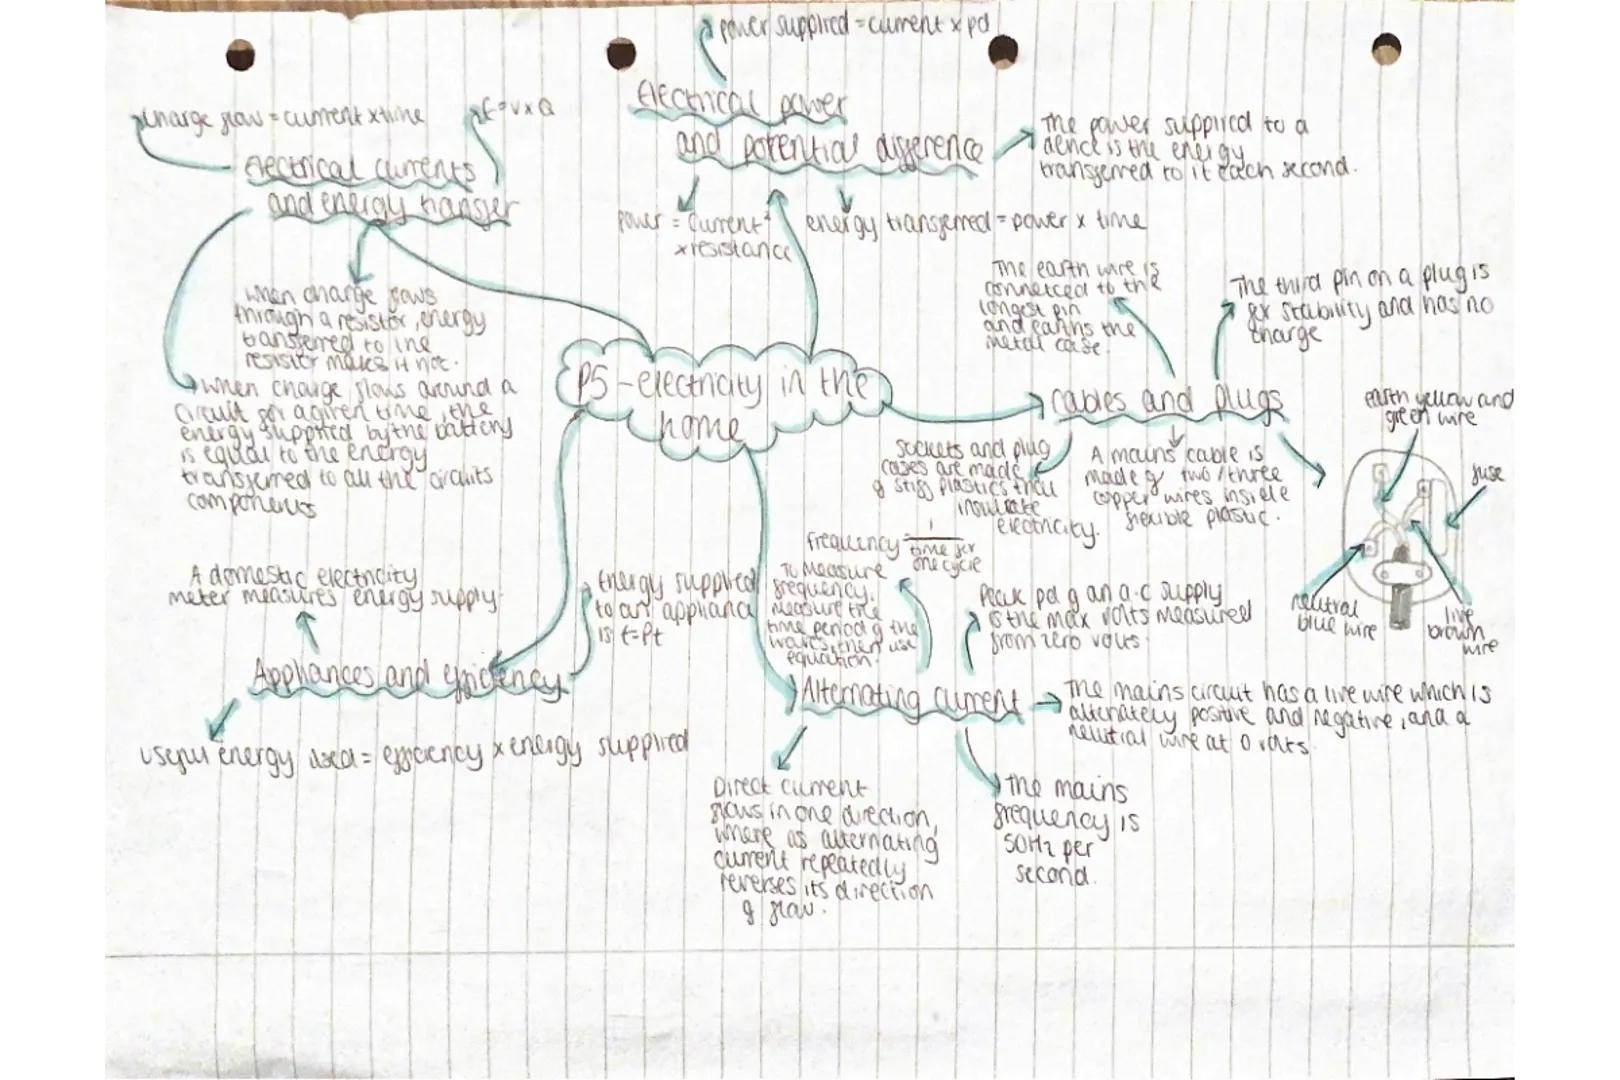 power supplied = current x pd
Electrical power
and potential difference
The power supplied to a
device is the energy
transferred to it each second.
power = current²
x resistance
energy transferred = power x time
charge flow = current x time
E = V x Q
Electrical currents
and energy transfer
When charge flows
through a resistor, energy
transferred to the
resistor makes it hot.
When charge flows around a
circuit for a given time, the
energy supplied by the battery
is equal to the energy
transferred to all the circuits
components
P5 - electricity in the
home
The earth wire is
connected to the
longest pin
and earths the
metal case.
The third pin on a plug is
for stability and has no
charge
cables and plugs
sockets and plug
cases are made
of stiff plastics that
insulate
electricity.
A mains cable is
made of two/three
copper wires inside
flexible plastic.
earth yellow and
green wire
fuse
neutral
blue wire
live
brown
wire
A domestic electricity
meter measures energy supply
Energy supplied
to an appliance
is E=Pt
Appliances and efficiency
Useful energy used = efficiency x energy supplied
frequency = 1
time for
one cycle
To measure
frequency,
measure the
time period of the
waves, then use
equation.
Peak pd of an a.c supply
is the max volts measured
from zero volts.
Alternating current
The mains circuit has a live wire which is
alternately positive and negative, and a
neutral wire at 0 volts.
Direct current
flows in one direction,
where as alternating
current repeatedly
reverses its direction
of flow.
The mains
frequency is
50Hz per
second.